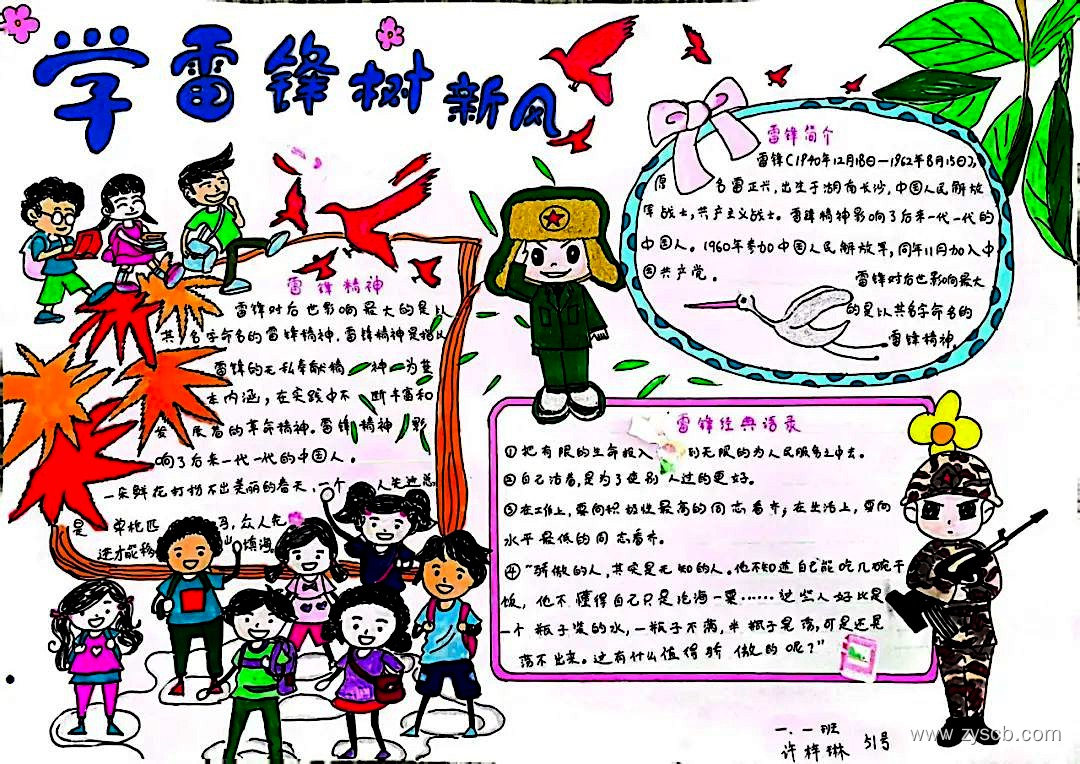 学雷锋树新风
雷锋简介
雷锋(1940年12月18日—1962年8月15日),
原 名雷正兴,出生于湖南长沙,中国人民解放
军战士,共产主义战士。雷锋精神影响了后来一代一代的
中国人。1960年参加中国人民解放军,同年11月加入中
国共产党。
雷锋对后世影响最大
的是以共名字命名的
雷锋精神。
雷锋精神
雷锋对后世影响最大的是以
共名字命名的雷锋精神.雷锋精神是指以
雷锋的无私奉献精 神 为基
本内涵,在实践中不 断丰富和
发 展着的革命精神。雷锋精神 影
响了后来一代一代的中国人。
一朵鲜花打扮不出美丽的春天,一个 人先进总
是 单枪匹 马,众人先
进才能移
雷锋经典语录
①把有限的生命投入 到无限的为人民服务之中去。
②自己活着,是为了使别 人过的更好。
③在工作上,要向积极性最高的同志看齐,在生活上,要向
水平最低的同志看齐。
④“骄傲的人,其实是无知的人。他不知道自己能吃几碗干
饭,他不懂得自己只是沧海一粟……这些人好比是
一个瓶子装的水,一瓶子不满,半瓶子是荡,可是还是
荡不出来。这有什么值得骄傲的呢?”
一.一班
许梓琳 31号
www.zyscb.com